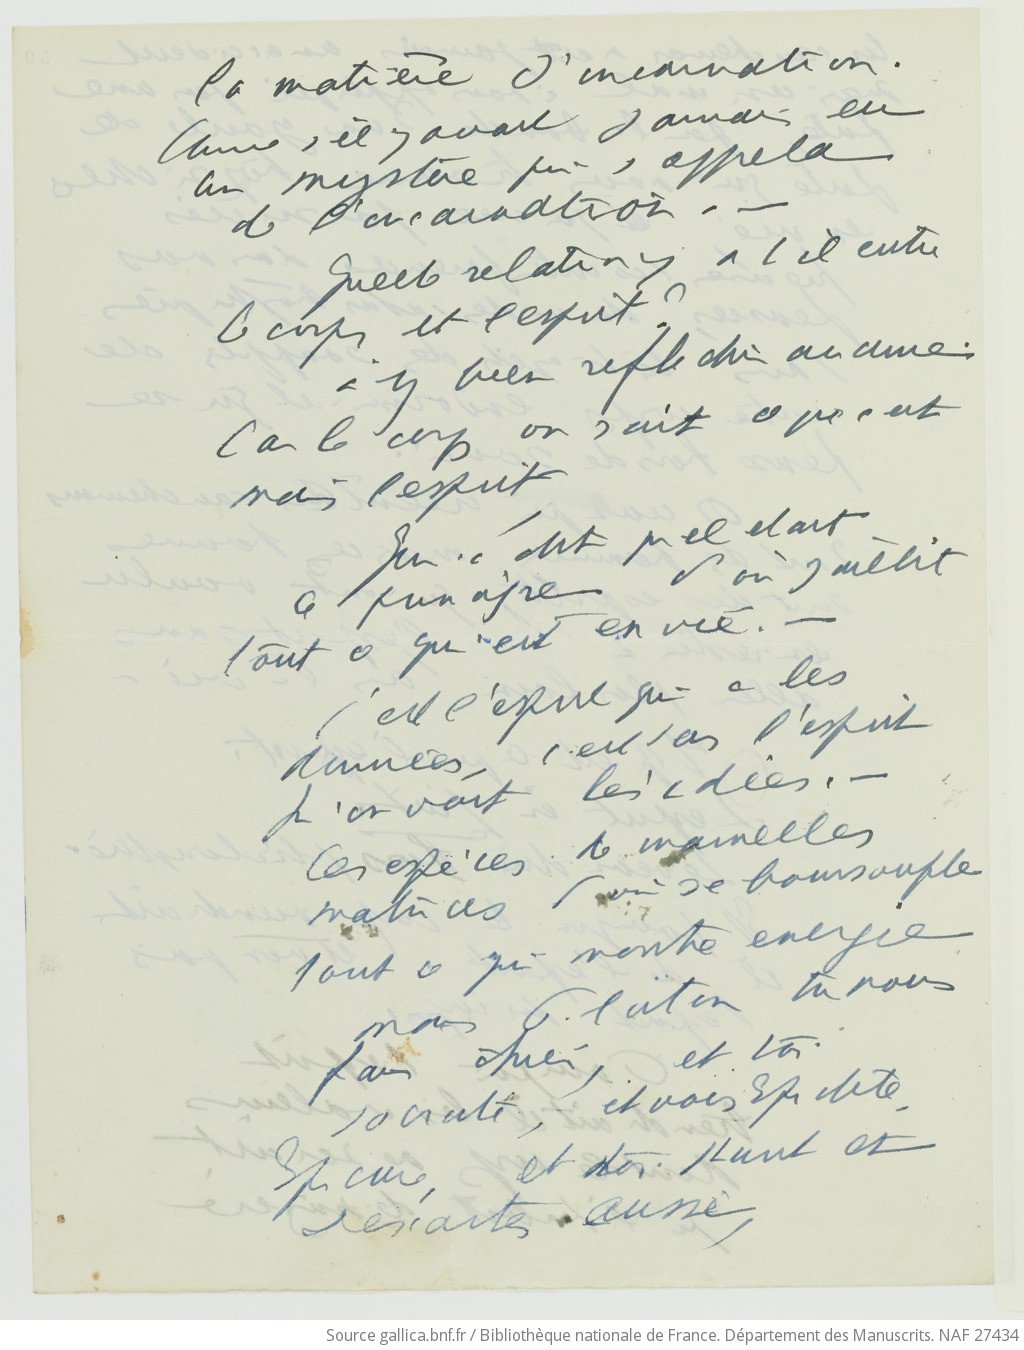 la matière d'incarnation.
Comme s'il y avait jamais eu
un mystère qui s'appela
de l'incarnation. —
Quelle relation y a t il entre
le corps et l'esprit?
à y bien réfléchir aucune.
Car le corps on sait ce que c'est
mais l'esprit
Qui a dit qu'il était
ce principe d'où jaillit
tout ce qui est en vie. —
C'est l'esprit qui a les
données, c'est dans l'esprit
qu'on voit les idées. —
Ces espèces de mamelles
matrices d'où se boursoufle
tout ce qui montre énergie
mais Platon tu nous
fais chier, et toi
Socrate, et vous Epictète,
Epicure, et toi Kant et
Descartes aussi,
Source gallica.bnf.fr / Bibliothèque nationale de France. Département des Manuscrits. NAF 27434